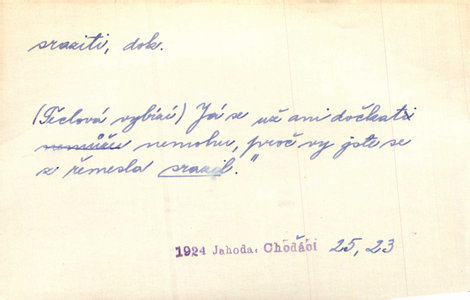 sraziti, dok.
(Těclová vybízí) Já se už ani dočkati
nemůžu nemohu, proč vy jste se
z řemesla srazil."
1924 Jahoda: Chóďáči 25, 23